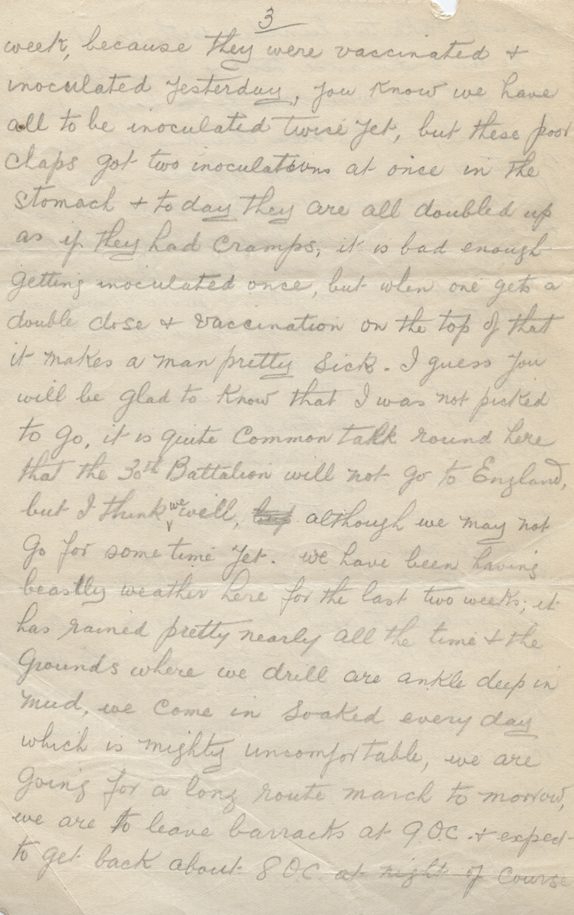 3
week, because they were vaccinated +
inoculated yesterday, you know we have
all to be inoculated twice yet, but these poor
claps got two inoculations at once in the
stomach + to day they are all doubled up
as if they had cramps, it is bad enough
getting inoculated once, but when one gets a
double dose + vaccination on the top of that
it makes a man pretty sick. I guess you
will be glad to know that I was not picked
to go, it is quite common talk round here
that the 30th Battalion will not go to England,
but I think we will, although we may not
go for some time yet. we have been having
beastly weather here for the last two weeks; it
has rained pretty nearly all the time + the
grounds where we drill are ankle deep in
mud, we come in soaked every day
which is mighty uncomfortable, we are
going for a long route march to morrow,
we are to leave barracks at 9 OC. + expect
to get back about 8 OC at night of course